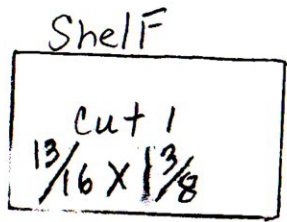 Shelf
cut 1
13/16 x 1 3/8